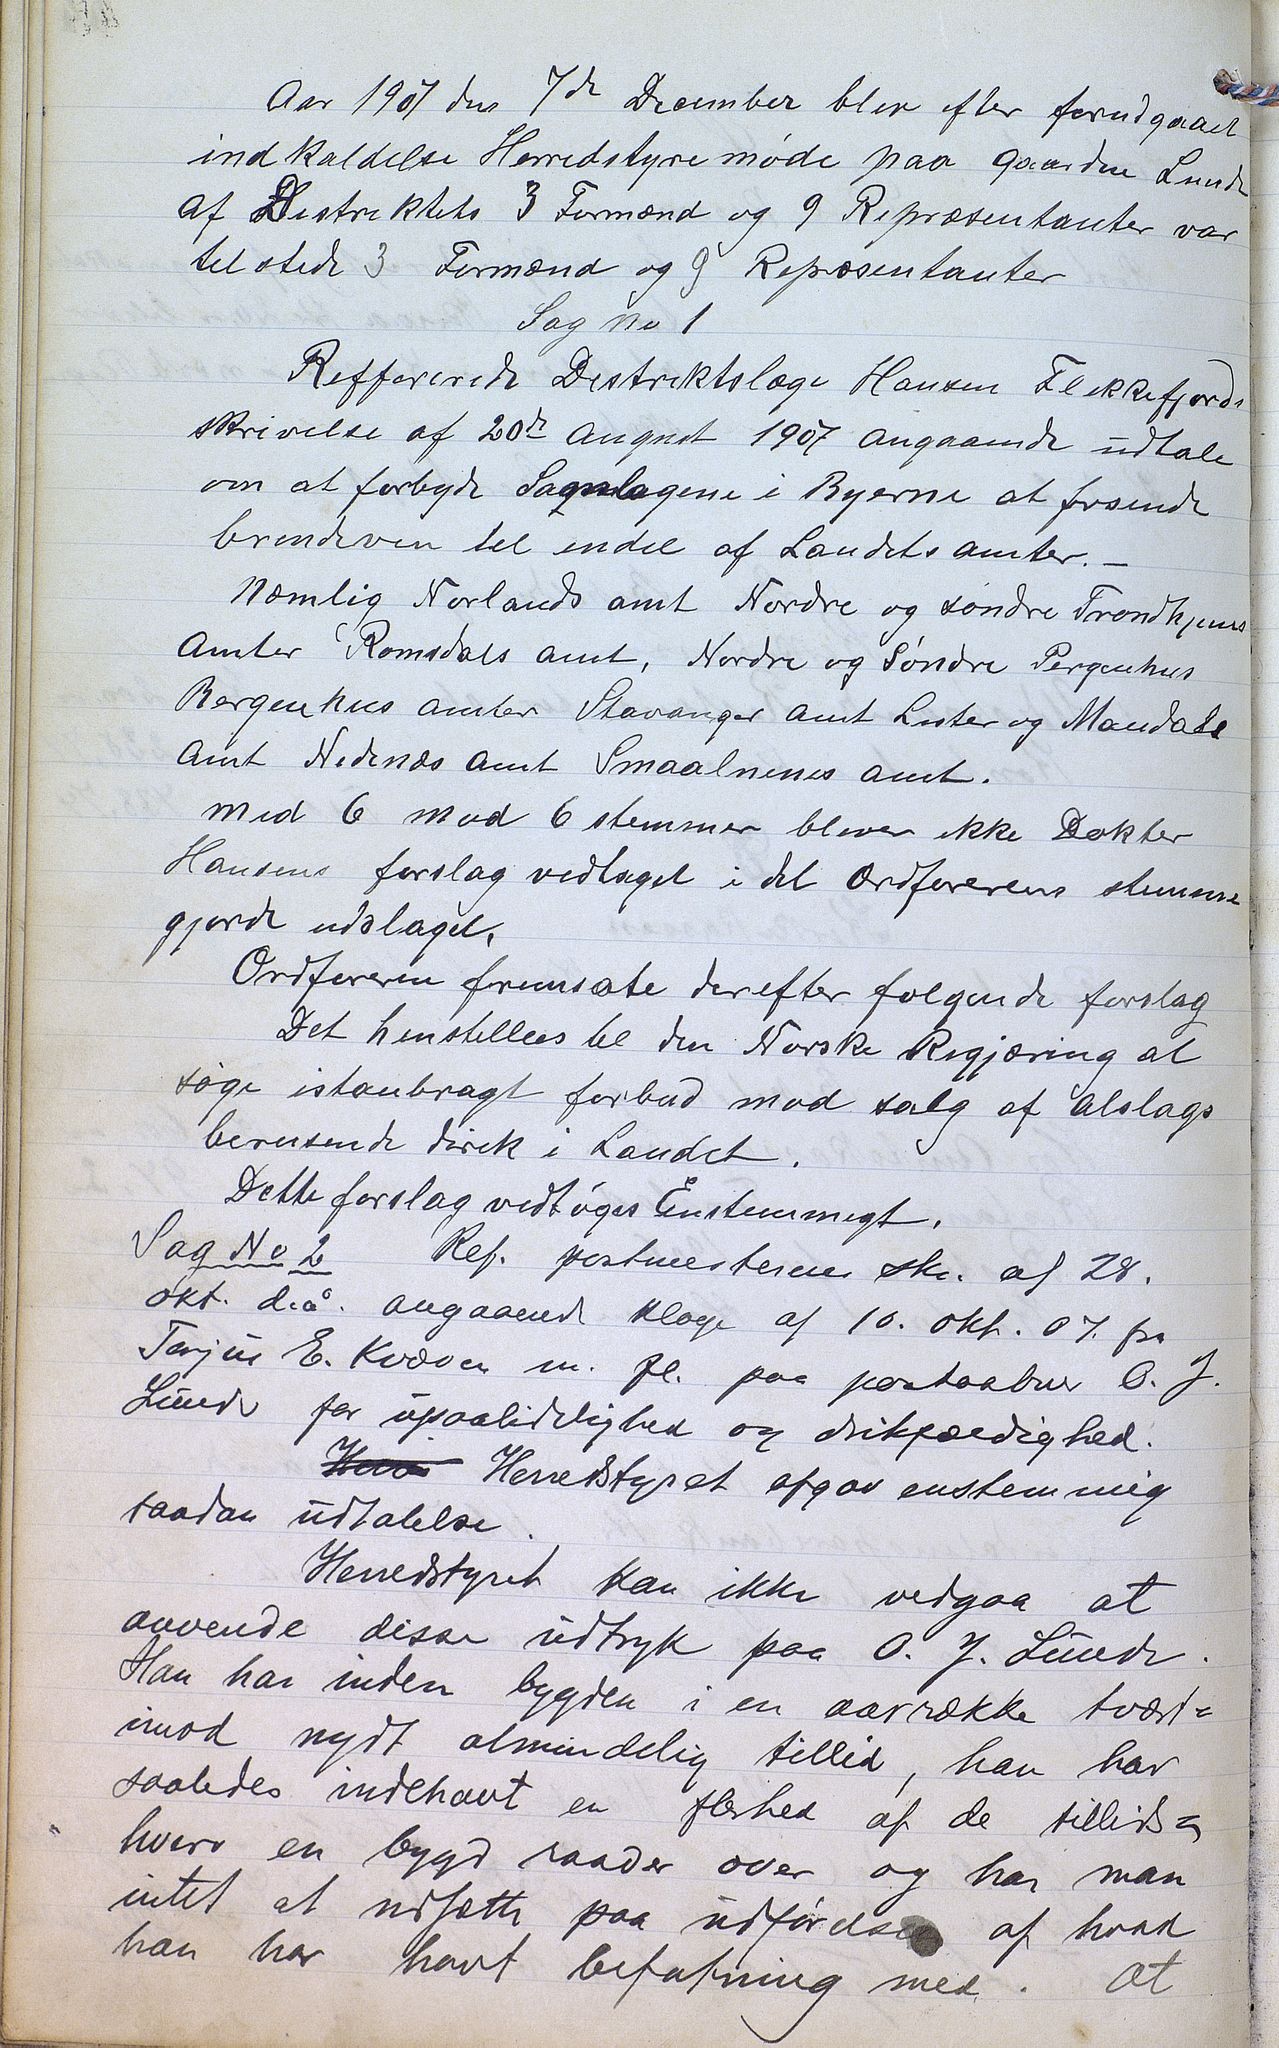 Aar 1907 den 7de December blev efter forudgaaet
indkaldelse Herredstyremøde paa gaarden Lunde
af Distriktets 3 Formænd og 9 Repræsentanter var
tilstede 3 Formænd og 9 Repræsentanter
Sag No 1
Reffererede Distriktslæge Hansen Flekkefjords
skrivelse af 20de august 1907 angaaende udtale
om at forbyde Samlagene i Byerne at forsende
brendevin til endel af Landets amter. —
Næmlig Norlands amt Nordre og søndre Trondhjems
Amter Romsdals amt, Nordre og Søndre Pergenhus
Bergenhus amter Stavanger amt Lister og Mandals
Amt Nedenæs amt Smaalenenes amt.
Med 6 mod 6 stemmer bliver ikke Dokter
Hansens forslag vedtaget i det Ordførerens stemme
gjorde udslaget.
Ordføreren fremsate derefter følgende forslag
Det henstilles til den Norske Regjæring at
søge istanbragt forbud mod salg af alslags
berusende dirck i Landet.
Dette forslag vedtøges Enstemmigt.
Sag No 2 Ref. postmesterens skr. af 28.
okt. d.å. angaaende klage af 10. okt. 07. fra
Tarjus E. Kvæven m. fl. paa postaabner O. J.
Lunde for upaalidelighed og drikfældighed.
Herredstyret afgav enstemmig
saadan udtalelse.
Herredstyret kan ikke vedgaa at
anvende disse udtryk paa O. J. Lunde.
Han har inden bygden i en aarrække tvært=
imod nydt almindelig tillid, han har
saaledes indehavt en flerhed af de tillids=
hverv en bygd raader over og har man
intet at udsætte paa udførelsen af hvad
han har havt befatning med. At